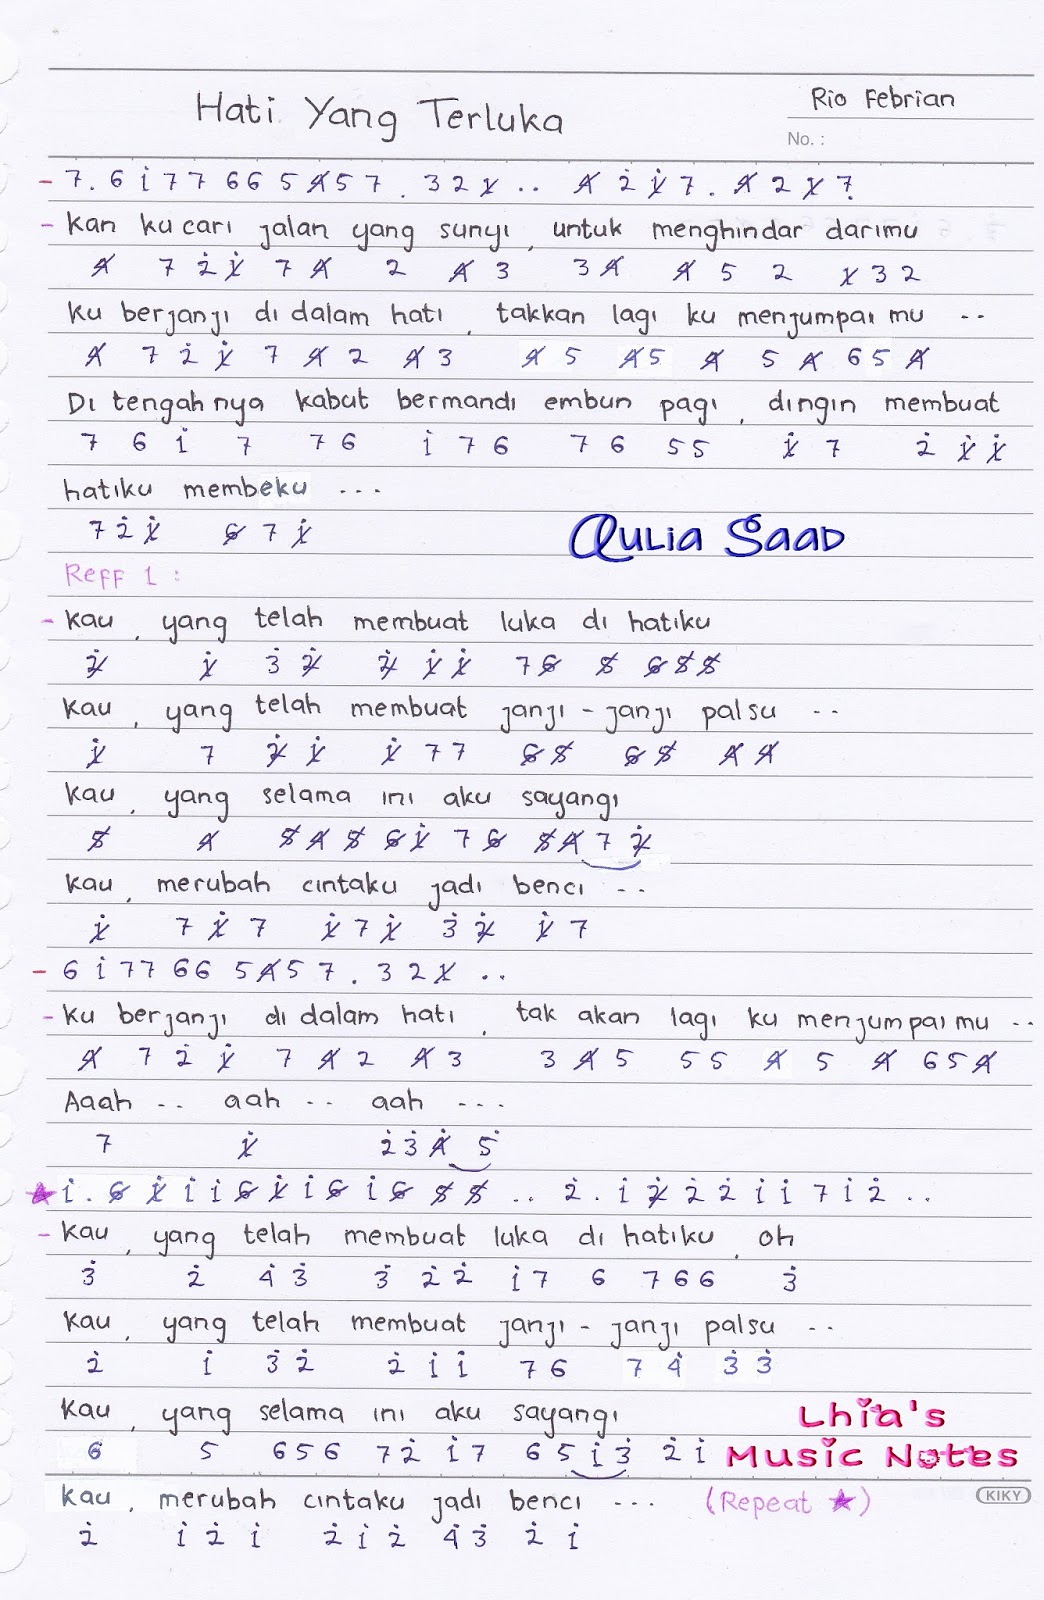 Rio Febrian
Hati Yang Terluka
No. :
- 7. 6 i̇ 7 7 6 6 5 4̸ 5 7 . 3 2 1̸ .. 4̸ 2̇ 1̸̇ 7 . 4̸ 2 1̸ 7̣
- Kan ku cari jalan yang sunyi, untuk menghindar darimu
4̸ 7 2̇ 1̸̇ 7 4̸ 2 4̸ 3 3 4̸ 4̸ 5 2 1̸ 3 2
Ku berjanji di dalam hati, takkan lagi ku menjumpai mu --
4̸ 7 2̇ 1̸̇ 7 4̸ 2 4̸ 3 4̸ 5 4̸ 5 4̸ 5 4̸ 6 5 4̸
Di tengah nya kabut bermandi embun pagi, dingin membuat
7 6 1̇ 7 7 6 1̇ 7 6 7 6 5 5 1̸̇ 7 2̇ 1̸̇ 1̸̇
hatiku membeku ...
7 2̇ 1̸̇ 6̸ 7 1̸̇
Aulia Saad
Reff 1 :
- Kau, yang telah membuat luka di hatiku
2̸̇ 1̸̇ 3̇ 2̸̇ 2̸̇ 1̸̇ 1̸̇ 7 6̸ 5̸ 6̸ 5̸ 5̸
Kau, yang telah membuat janji - janji palsu --
1̸̇ 7 2̸̇ 1̸̇ 1̸̇ 7 7 6̸ 5̸ 6̸ 5̸ 4̸ 4̸
Kau, yang selama ini aku sayangi
5̸ 4̸ 5̸ 4̸ 5̸ 6̸ 1̸̇ 7 6̸ 5̸ 4̸ 7 2̸̇
Kau, merubah cintaku jadi benci --
1̸̇ 7 1̸̇ 7 1̸̇ 7 1̸̇ 3̇ 2̸̇ 1̸̇ 7
- 6 1̇ 7 7 6 6 5 4̸ 5 7 . 3 2 1̸ ..
- Ku berjanji di dalam hati, tak akan lagi ku menjumpai mu --
4̸ 7 2̇ 1̸̇ 7 4̸ 2 4̸ 3 3 4̸ 5 5 5 4̸ 5 4̸ 6 5 4̸
Aaah -- aah -- aah ---
7 1̸̇ 2̇ 3̇ 4̸̇ 5̇
★ 1̇ . 6̸ 1̸̇ 1̇ 1̇ 6̸ 1̸̇ 1̇ 6̸ 1̇ 6̸ 5̸ 5̸ .. 2̇ . 1̇ 2̸̇ 2̇ 2̇ 1̇ 1̇ 7 1̇ 2̇ ..
- Kau, yang telah membuat luka di hatiku, oh
3̇ 2̇ 4̇ 3̇ 3̇ 2̇ 2̇ 1̇ 7 6 7 6 6 3̇
Kau, yang telah membuat janji - janji palsu --
2̇ 1̇ 3̇ 2̇ 2̇ 1̇ 1̇ 7 6 7 4̇ 3̇ 3̇
Kau, yang selama ini aku sayangi
6 5 6 5 6 7 2̇ 1̇ 7 6 5 1̇ 3̇ 2̇ 1̇
Lhia's
Music Notes
Kau, merubah cintaku jadi benci --- (Repeat ★)
KIKY
2̇ 1̇ 2̇ 1̇ 2̇ 1̇ 2̇ 4̇ 3̇ 2̇ 1̇